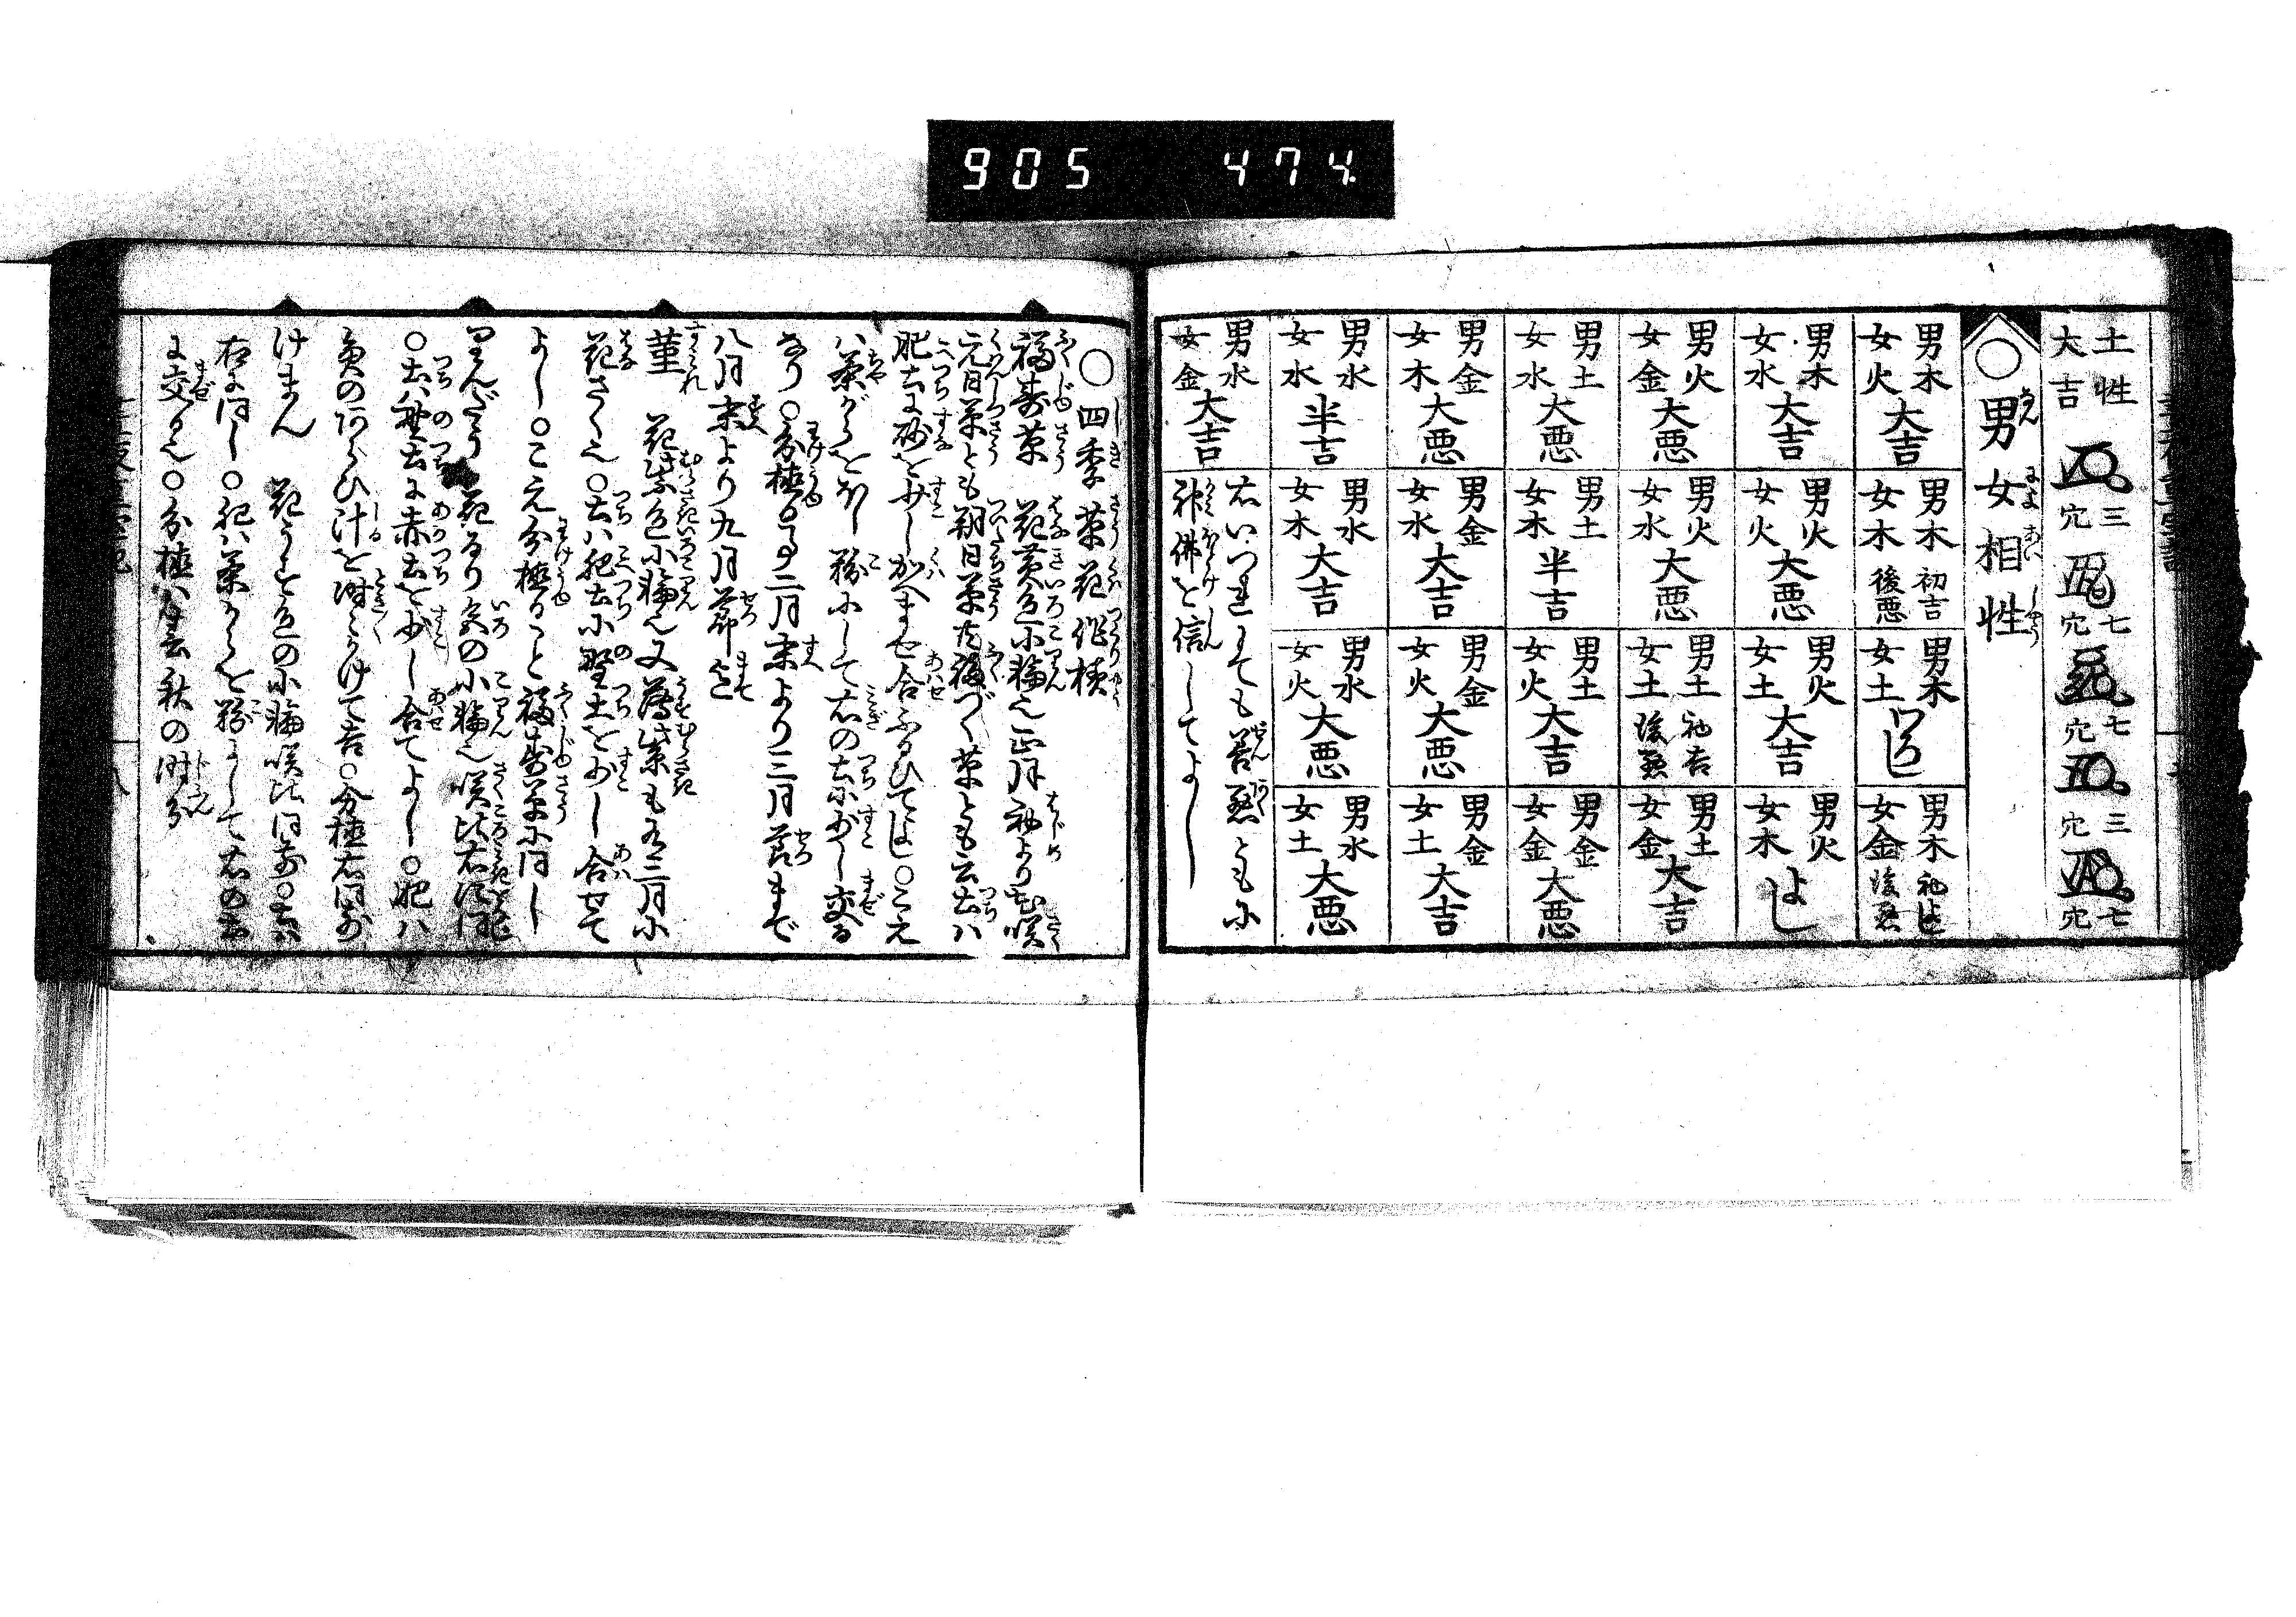 905 474
土性
大吉
三穴
七穴
七穴
三穴
七穴
○男女相性
男木女火大吉
男木女木初吉後悪
男木女土わろし
男木女金初吉後悪
男木女水大吉
男火女火大悪
男火女土大吉
男火女木よし
男火女金大悪
男火女水大悪
男土女土初吉後悪
男土女金大吉
男土女水大悪
男土女木半吉
男土女火大吉
男金女金大悪
男金女木大悪
男金女水大吉
男金女火大悪
男金女土大吉
男水女水半吉
男水女木大吉
男水女火大悪
男水女土大悪
男水女金大吉
右いつれにても善悪ともに
神佛を信してよし
○四季草花作様
福寿草 花黄色小輪也正月初より咲
元日草とも朔日草共福づく草とも云土ハ
肥土に砂を少しかへませ合ふるひてよし○こえ
ハ茶がらをほし粉にして右の土に少し交る
なり○分植る事二月末より三月節まで
八月末より九月節迄
菫 花紫色小輪也又薄紫も有三月に
花さく也○土ハ肥土に野土を少し合せて
よし○こえ分植ること福寿草に同し
花るり色の小輪也咲比右に同
○土ハ野土に赤土を少し合てよし○肥ハ
魚のあらひ汁を時々かけて吉○分植右同前
けまん 花うす色の小輪咲比同前○土ハ
右に同し○肥ハ茶からを粉にして右の土
に交る也○分植ハ春秋の時分